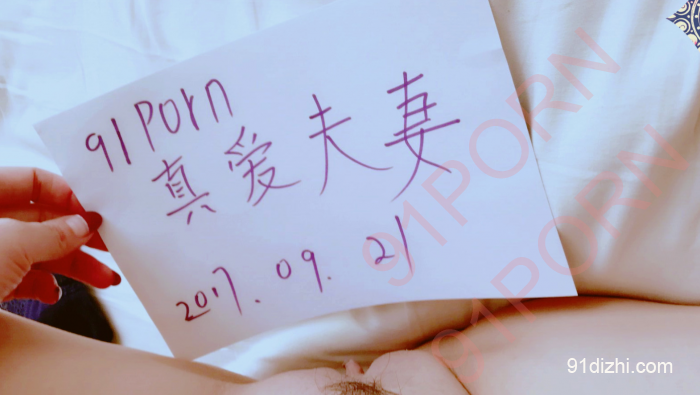 91Porn
真爱夫妻
2017.09.21
91PORN
91PORN
91dizhi.com